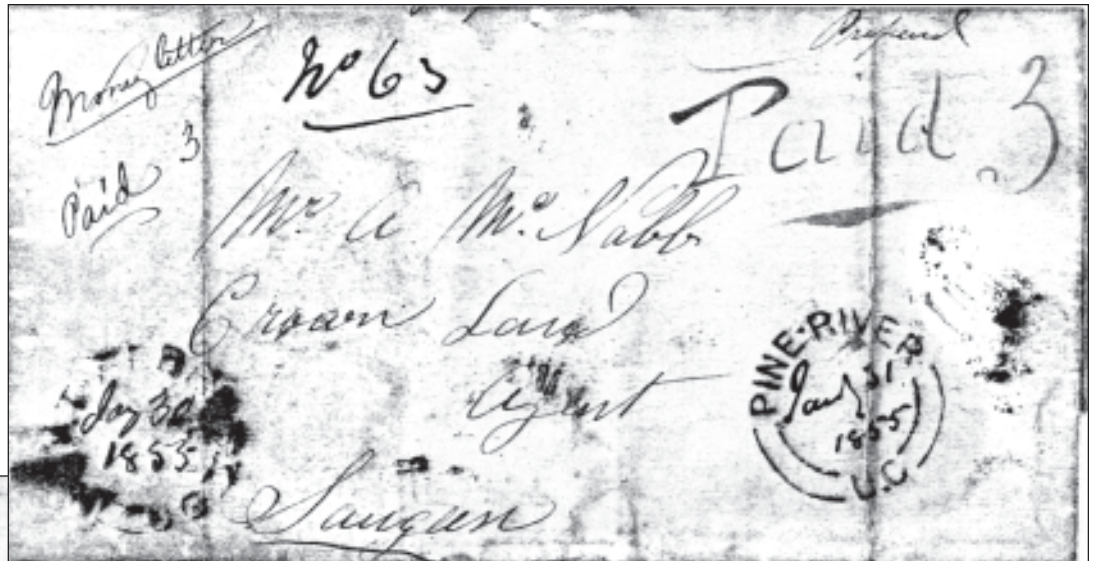 Money letter
Paid 3
No 63
Prepaid
Paid 3
Mr. A McNabb
Crown Land
Agent
Saugeen
Jany 30
1855
PINE·RIVER
Jany 31
1855
U.C